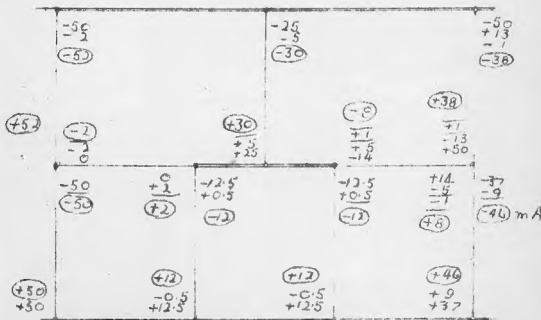 -50
-2
(-52)
-25
-5
(-30)
-50
+13
-1
(-38)
(+52)
(-2)
-2
0
(+30)
+5
+25
+1
+5
-14
(+38)
+1
-13
+50
-50
(-50)
0
+2
(+2)
-12.5
+0.5
(-12)
-12.5
+0.5
(-12)
+14
-5
-1
(+8)
-37
-9
(-46) mA
(+50)
+50
(+12)
-0.5
+12.5
(+12)
-0.5
+12.5
(+46)
+9
+37